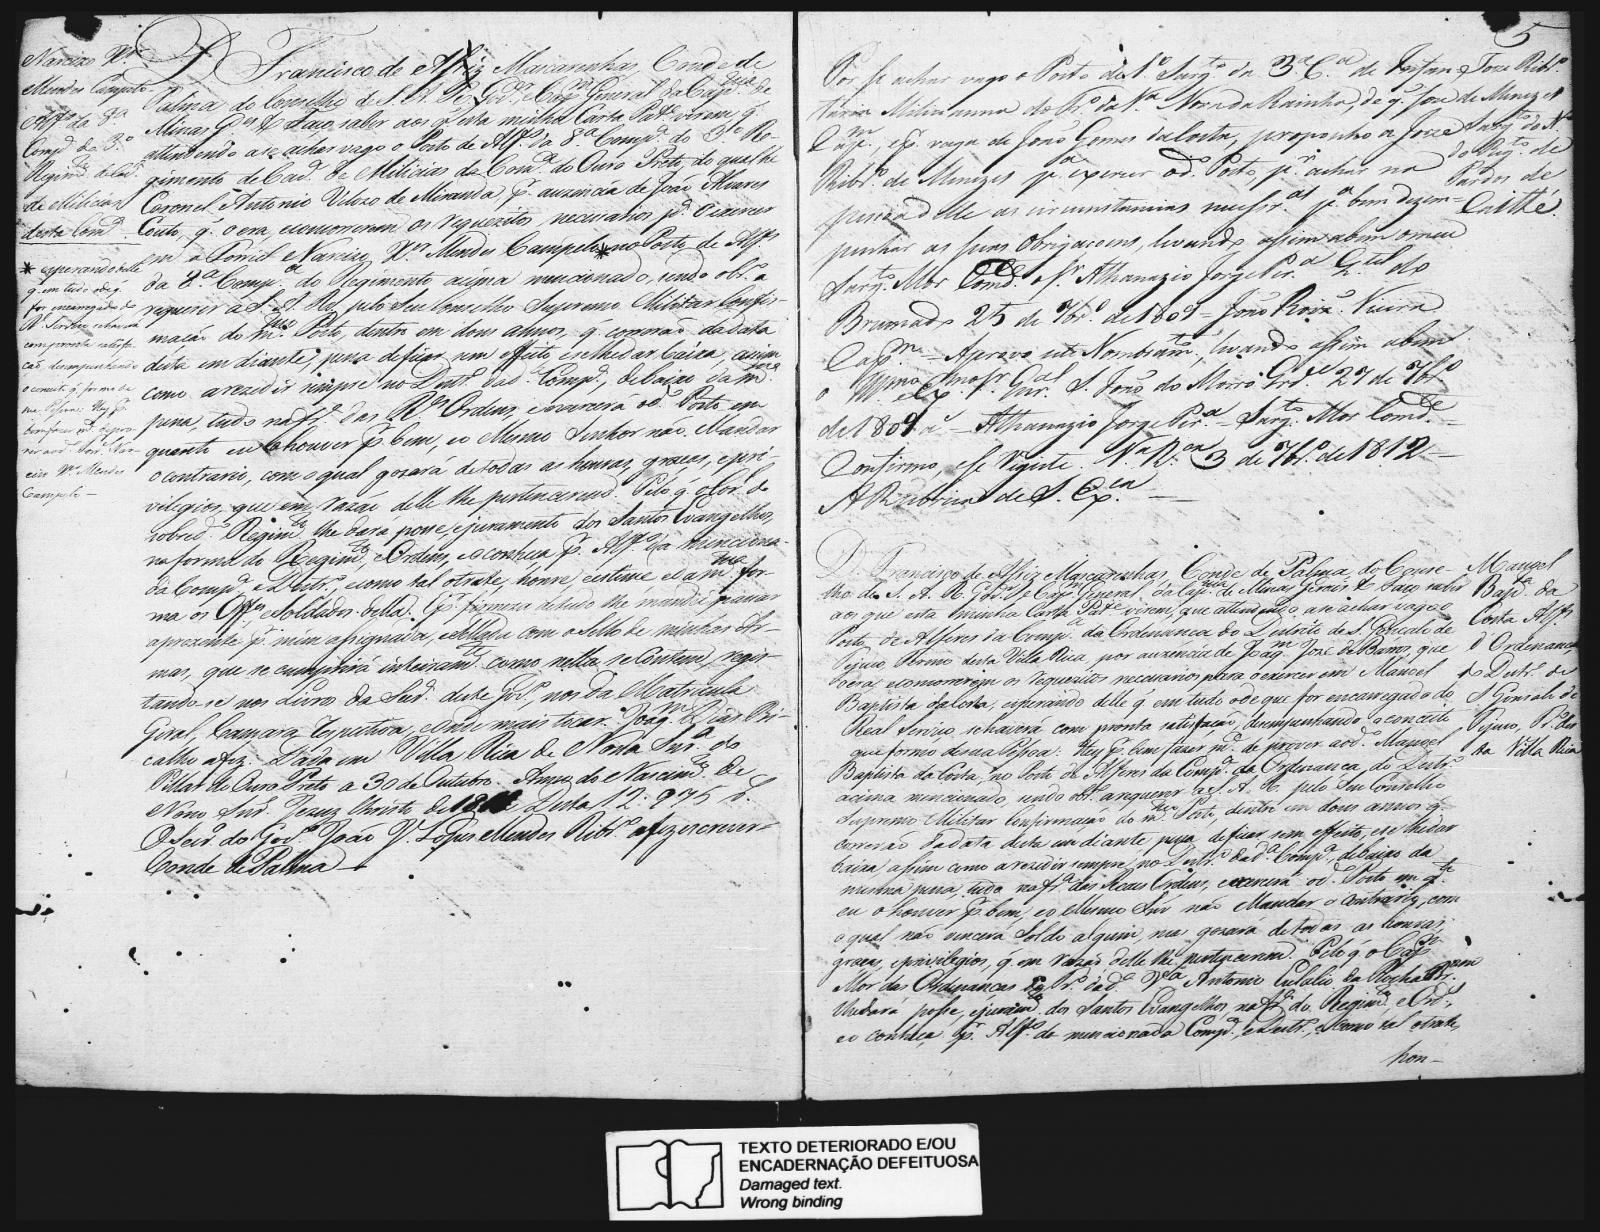 Narcizo Xer
Mendes Campelo
Alfs da 8ª
Comp.ª do 3º
Regimto de Cavª
de Milicias
desta Com.ca
D. Francisco de Assiz Mascarenhas, Conde de
Palma do Conselho de S. A. R. Govor, e Capm General da Capnia de
Minas Ges &. Faço saber aos q esta minha Carta Pate virem, q
attendendo a se achar vago o Posto de Alfs da 8ª Compª do 3º Re-
gimento de Cavª de Milicias da Comca do Ouro Preto, do qual he
Coronel Antonio Velozo de Miranda, pr auzencia de João Alvares
Couto, q o era, e concorrerem os requezitos necesarios pª o exercer
em o Narcizo Xer Mendes Campelo * no Posto de Alfs
da 8ª Compª do Regimento acima mencionado, sendo obro a
requerer a S. A. R. pelo Seu Conselho Supremo Militar Confir-
mação do mmo Posto, dentro em dous annos, q correrão da data
desta em diante, pena de ficar sem effeito, e se lhe dar baixa, assim
como a rezidir sempre no Destro dadª Compª, debaixo da mma
pena, tudo na fª das Rs Ordens, e exercerá od.º Posto em
quanto eu o houver pr bem, e o Mesmo Senhor não Mandar
o contrario, com o qual gozará de todas as honras, graças, e pri-
vilegios, que em razão delle lhe pertencerem. Pelo q o Cor.el do
sobredº Regimto lhe dará posse, e juramento dos Santos Evangelhos,
na forma do Regimto, e Ordens, e o conheça pr Alfs da menciona-
da Compª, e Destro, e como tal o trate, honre, e estime e da mma for-
ma os Offes, e Soldados della. Epr firmeza de tudo lhe mandei passar
a prezente pr mim assignada, e Sellada com o Sello de minhas Ar-
mas, que se cumprirá inteiramte como nella se Contem, regis-
tando-se nos Livros da Secra deste Govo, nos da Matricula
Geral, Camara respectiva, e onde mais tocar. Joaqm Dias Bi-
calho a fez. Dada em Villa Rica de Nossa Snrª do
Pillar do Ouro Preto a 30 de Outubro. Anno do Nascimto de
Nosso Snr Jezus Christo de Desta 12:975 rs.
O Secro do Govo João Je Lopes Mendes Ribro a fez escrever
Conde de Palma
* esperando delle
q em tudo o de q
for encarregado do
Rl Serviço se haverá
com prompta satisfa-
ção, desempenhando
o conceito q formo de
sua Pessoa: Hey pr
bem fazer mce de pro-
ver aod.º Tore Nar-
cizo Xer Mendes
Campelo
5
Por se achar vago o Posto de 1º Sargto da 3ª Cª de Infan-
taria Miliciana do Tro da Vª Nova da Rainha, de q Joze de Menezes
Capm, e pr vaga de João Gomes da Costa, proponho a Joze
Ribro de Menezes pª exercer od.º Posto, pr achar na
pessoa delle as circumstancias necessras pª bem dezem-
penhar as suas Obrigaçoens, levando assim a bem o meu
Sargto Mor Comde o Sr Athanazio Jorge Perª Gtil do
Brumado 25 de 7bro de 1809 = João Roiz Vieira
Capm = Aprovo este Nombramto, levando assim a bem
o Illmo e Exmo Snr Gal S. João do Morro Grde 27 de 7bro
de 1809 = Athanazio Jorge Perª = Sargto Mor Comde =
Confirmo, e se Registe. Vª Rca 3 de 7bro de 1812 =
A Rubrica de S. Exca
Joze Ribro
de Menezes
Sargto do Nº
do Regto de
Pardos de
Caithé.
D. Francisco de Assiz Mascarenhas, Conde de Palma, do Conse-
lho de S. A. R. Govor, e Capm General da Capnia de Minas Geraes &. Faço saber
aos que esta minha Carta Pate virem, que attendendo a se achar vago o
Posto de Alferes da Compª da Ordenança do Destrito de S. Gonçalo de
Tejuco, Termo desta Villa Rica, por auzencia de Joaqm Joze de Barros, que
o era, e concorrerem os requezitos necesarios para o exercer em Manoel
Baptista da Costa; esperando delle q em tudo o de que for encarregado do
Real Serviço, se haverá com prompta satisfação, desempenhando o conceito
que formo de sua Pessoa: Hey pr bem fazer mce de prover aod.º Manoel
Baptista da Costa, no Posto de Alferes da Compª da Ordenança, do Destro
acima mencionado, sendo obro a requerer a S. A. R. pelo Seu Conselho
Supremo Militar Confirmação do mmo Posto, dentro em dous annos q
correrão da data desta em diante, pena de ficar sem effeito, e se lhe dar
baixa, assim como a rezidir sempre no Destro dadª Compª, debaixo da
mesma pena, tudo na fª das Reaes Ordens, e exercerá od.º Posto em qto
eu o houver pr bem, e o Mesmo Snr não Mandar o contrario, com
o qual não vencerá Soldo algum, mas gozará de todas as honras,
graças, e privilegios, q em razão delle lhe pertencerem. Pelo q o Capm
Mor das Ordenanças do Tro dadª Vª Antonio Eulalio da Rocha
lhe dará posse, e juramto dos Santos Evangelhos, na fª do Regimto, e Ords
e o conheça pr Alfs da mencionada Compª, e Destro, e como tal o trate,
hon-
Manoel
Bapta da
Costa Alfs
d'Ordenança
do Destro de
S. Gonçalo de
Tejuco, To des-
ta Villa Rica
TEXTO DETERIORADO E/OU
ENCADERNAÇÃO DEFEITUOSA
Damaged text.
Wrong binding